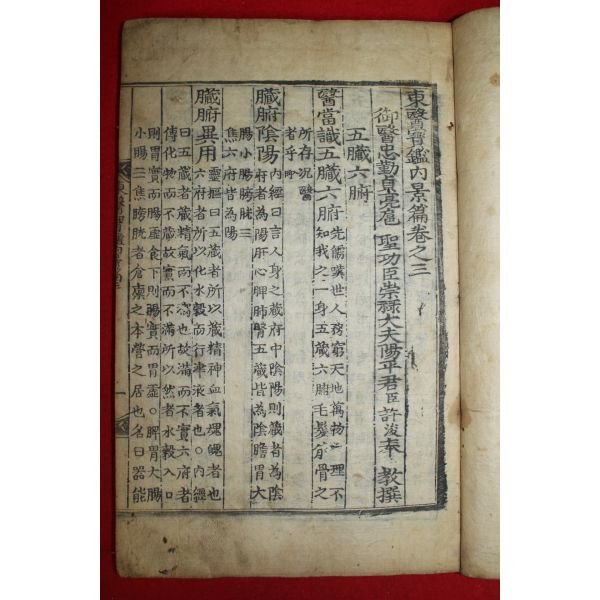 東醫寶鑑內景篇卷之三
御醫忠勤貞亮扈 聖功臣崇祿大夫陽平君臣許浚奉 教撰
五臟六腑
醫當識五臟六腑 先儒嘆世人務窮天地萬物之理不
知我之一身五藏六腑毛髮筋骨之
所存況醫
者乎
臟腑陰陽 內經曰言人身之藏府中陰陽則藏者為陰
府者為陽肝心脾肺腎五藏皆為陰膽胃大
腸小腸膀胱三
焦六府皆為陽
臟腑異用 靈樞曰五藏者所以藏精神血氣魂魄者也
六府者所以化水穀而行津液者也○內經
曰五藏者藏精氣而不瀉也故滿而不實六府者
傳化物而不藏故實而不滿所以然者水穀入口
則胃實而腸虛食下則腸實而胃虛○脾胃大腸
小腸三焦膀胱者倉廩之本營之居也名曰器能